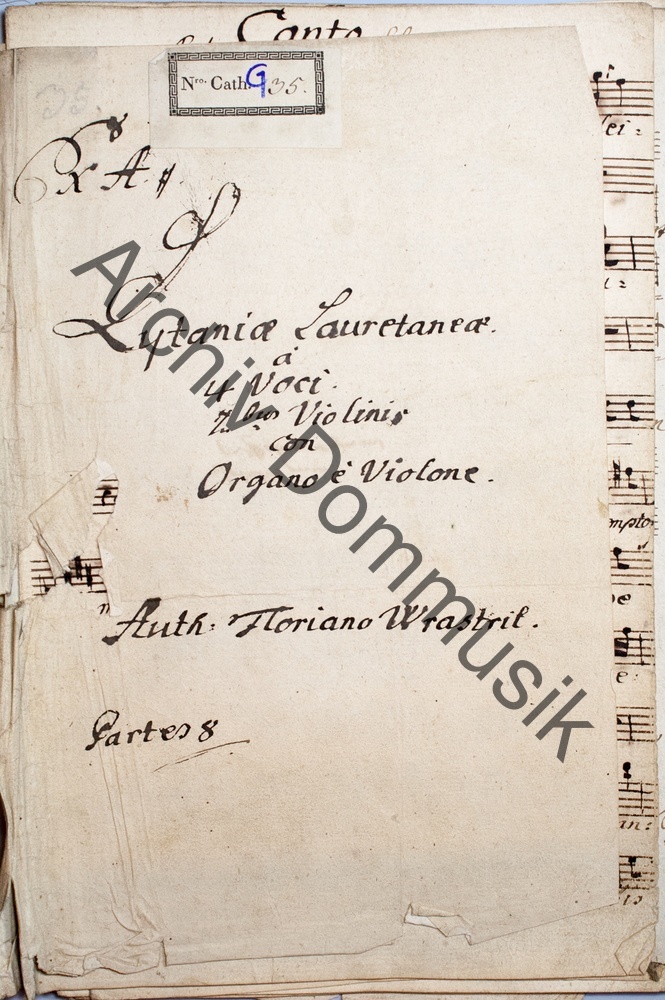 Canto
Nro. Cath. G 35.
35.
Ex A #.
Lytaniæ Lauretaneæ.
à
4 Voci.
2bus Violinis
con
Organo è Violone.
Auth: Floriano Wrastril.
Partes 8
Archiv Dommusik
lei:
mpto
e:
an: